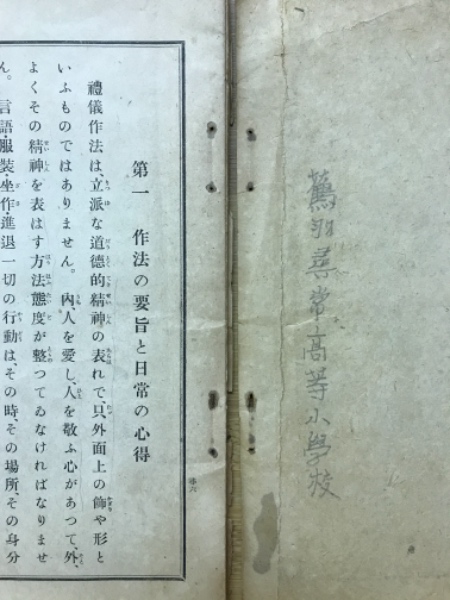 蔦羽尋常高等小學校
第一 作法の要旨と日常の心得
禮儀作法は、立派な道德的精神の表れで、只、外面上の飾や形と
いふものではありません。內、人を愛し、人を敬ふ心があつて、外、
よくその精神を表はす方法態度が整つてゐなければなりませ
ん。言語・服裝・坐作・進退一切の行動は、その時、その場所、その身分